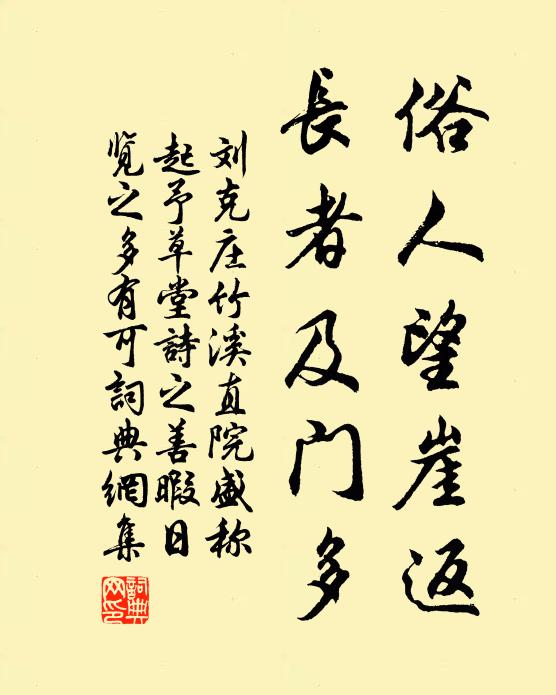 俗人望崖返
長者及门多
刘克庄竹溪直院盛称
起予草堂詩之善暇日
览之多有可詞典網集
詞典網印